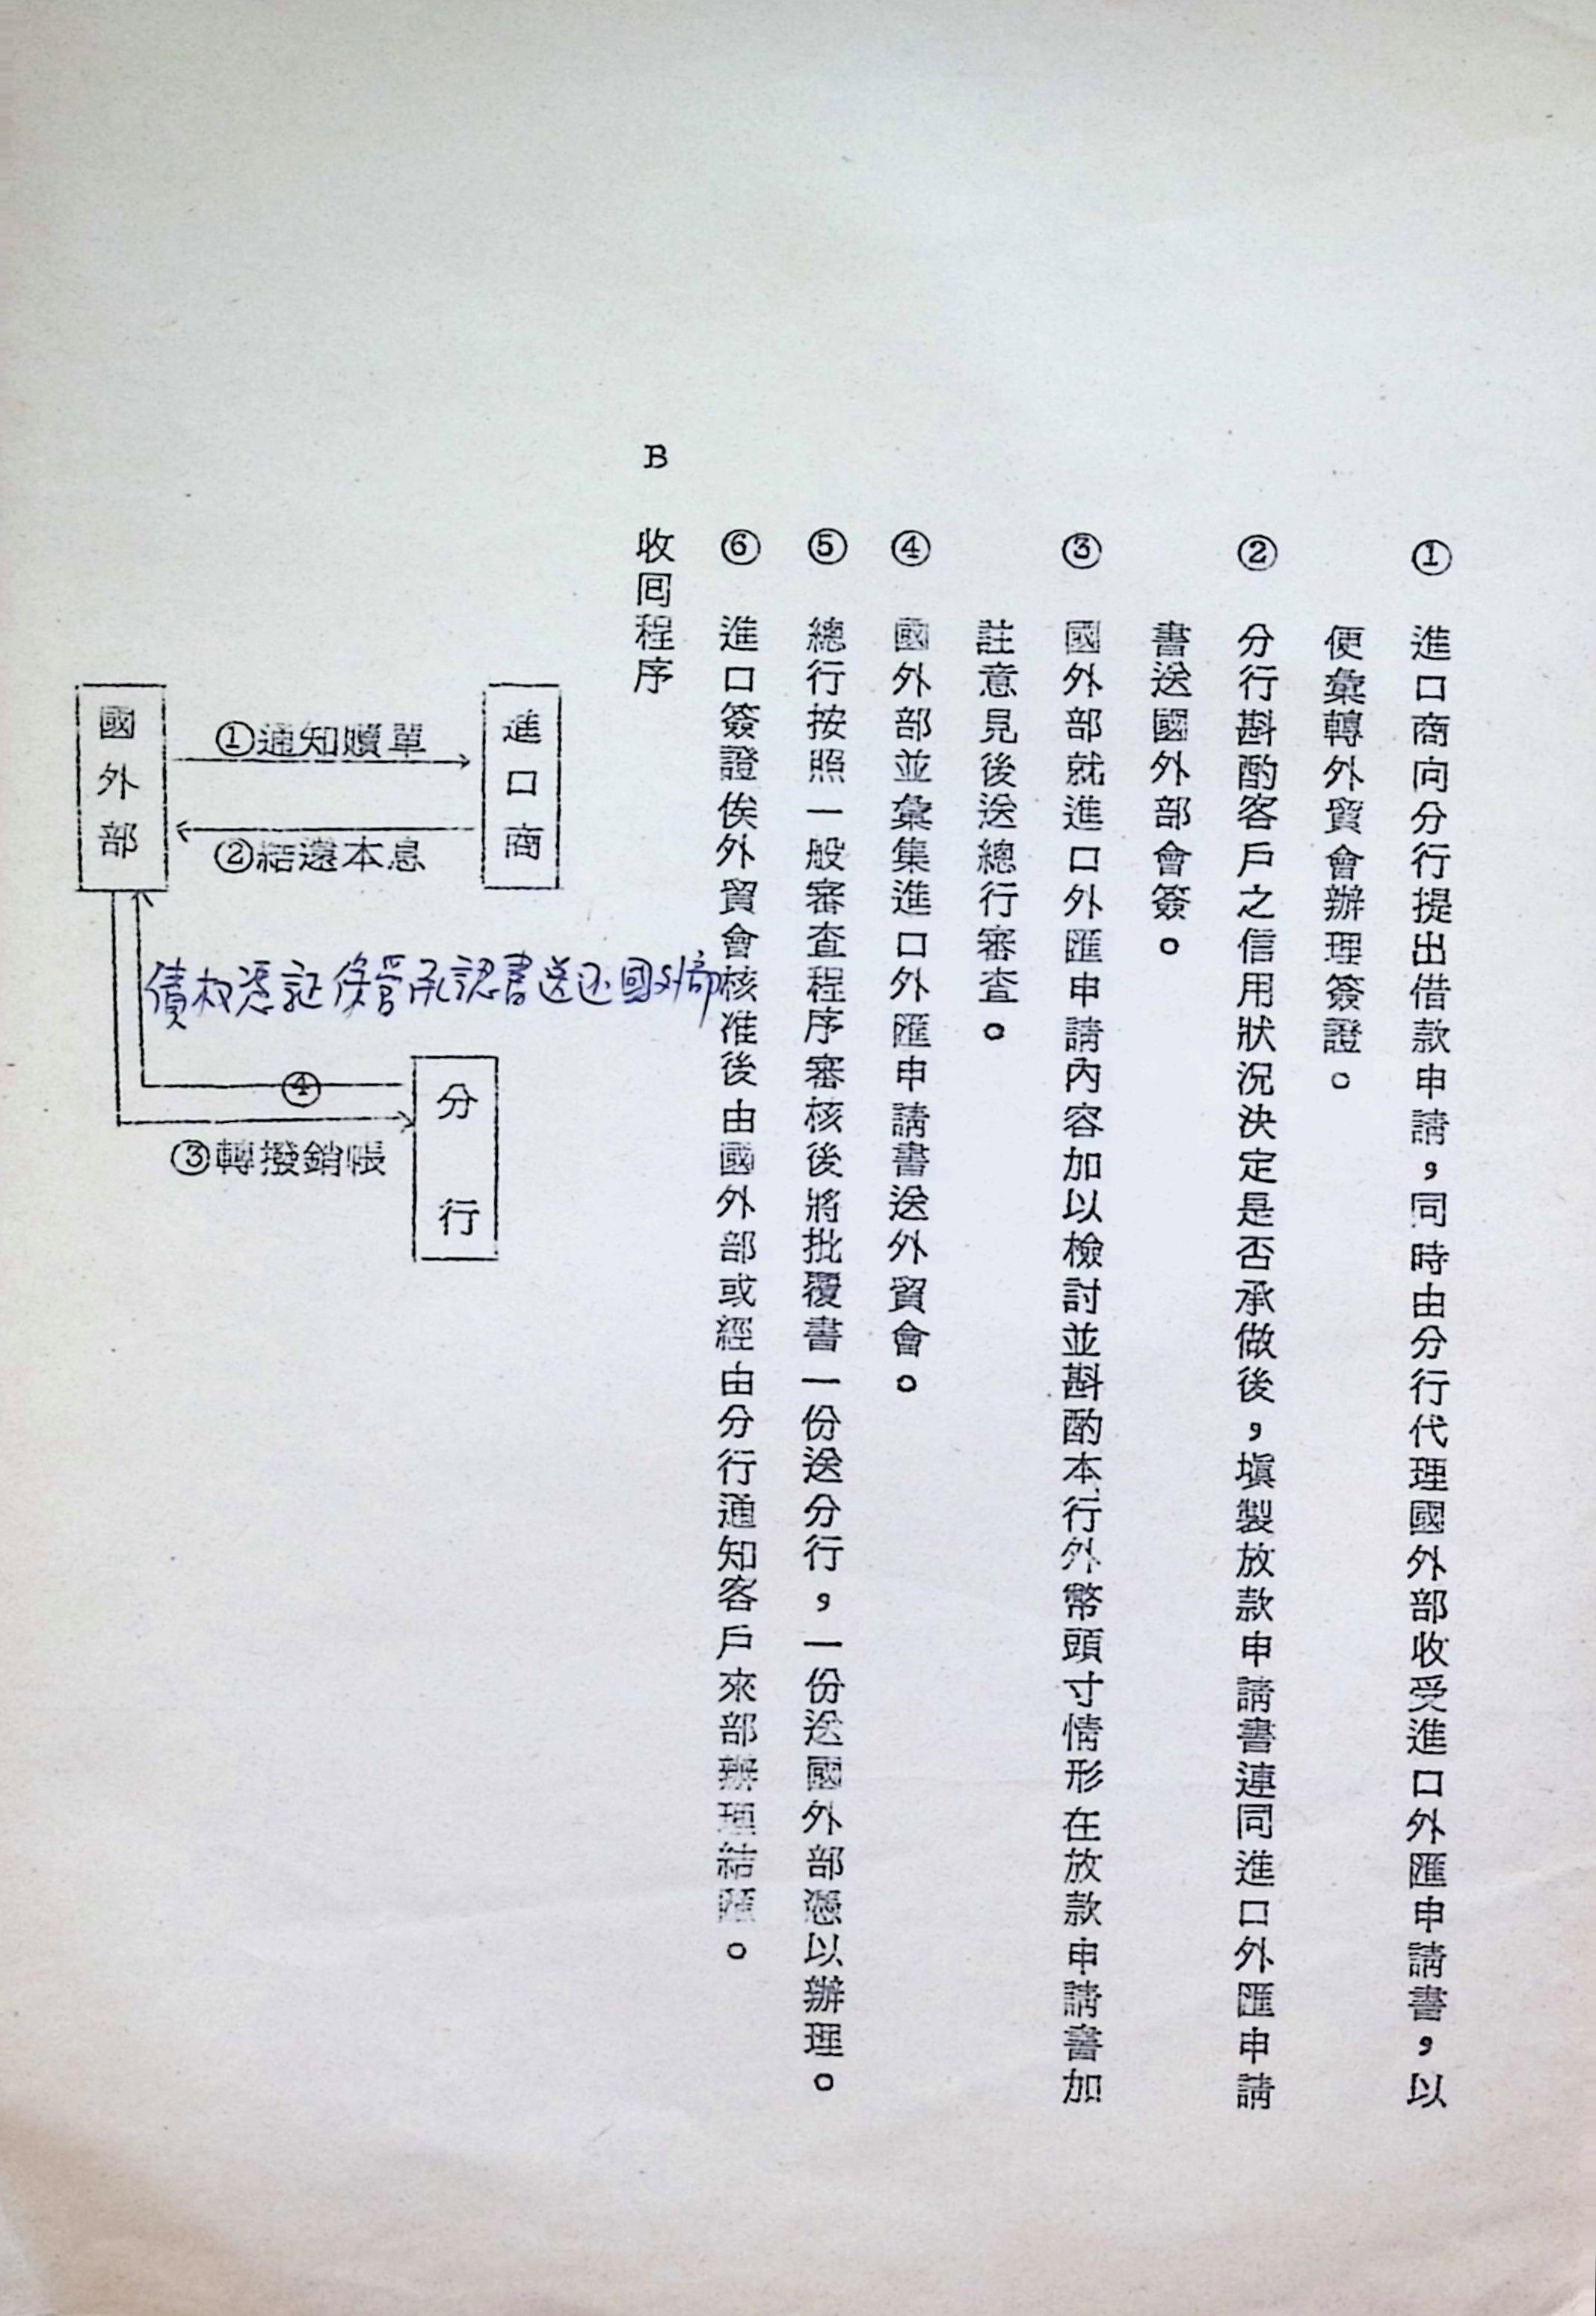 ① 進口商向分行提出借款申請，同時由分行代理國外部收受進口外匯申請書，以
便彙轉外貿會辦理簽證。
② 分行斟酌客戶之信用狀況決定是否承做後，塡製放款申請書連同進口外匯申請
書送國外部會簽。
③ 國外部就進口外匯申請內容加以檢討並斟酌本行外幣頭寸情形在放款申請書加
註意見後送總行審查。
④ 國外部並彙集進口外匯申請書送外貿會。
⑤ 總行按照一般審查程序審核後將批覆書一份送分行，一份送國外部憑以辦理。
⑥ 進口簽證俟外貿會核准後由國外部或經由分行通知客戶來部辦理結匯。
B 收囘程序
進口商
①通知贖單
②結還本息
國外部
債权憑証保管承認書送还國外部
分行
④
③轉撥銷帳